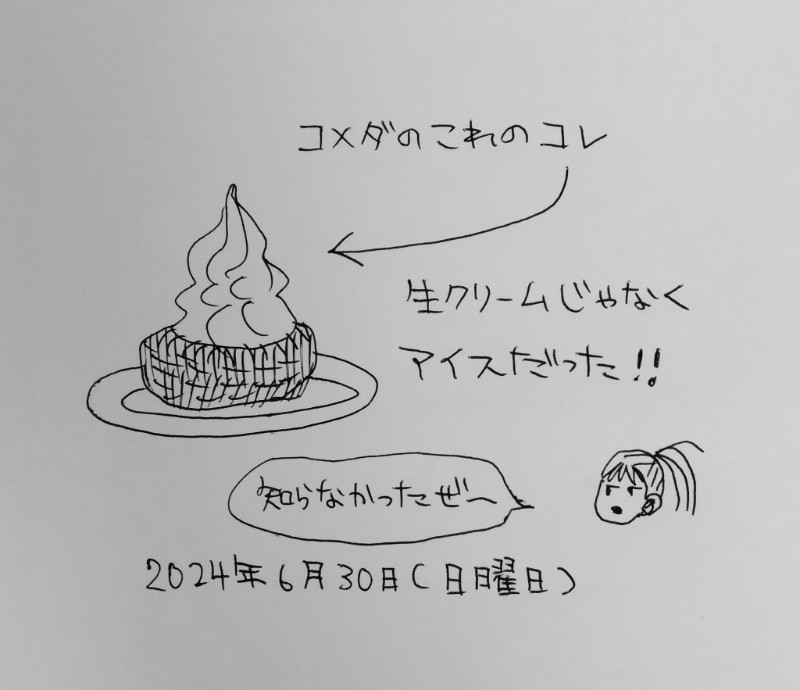 コメダのこれのコレ
生クリームじゃなく
アイスだった!!
知らなかったぜ〜
2024年6月30日(日曜日)